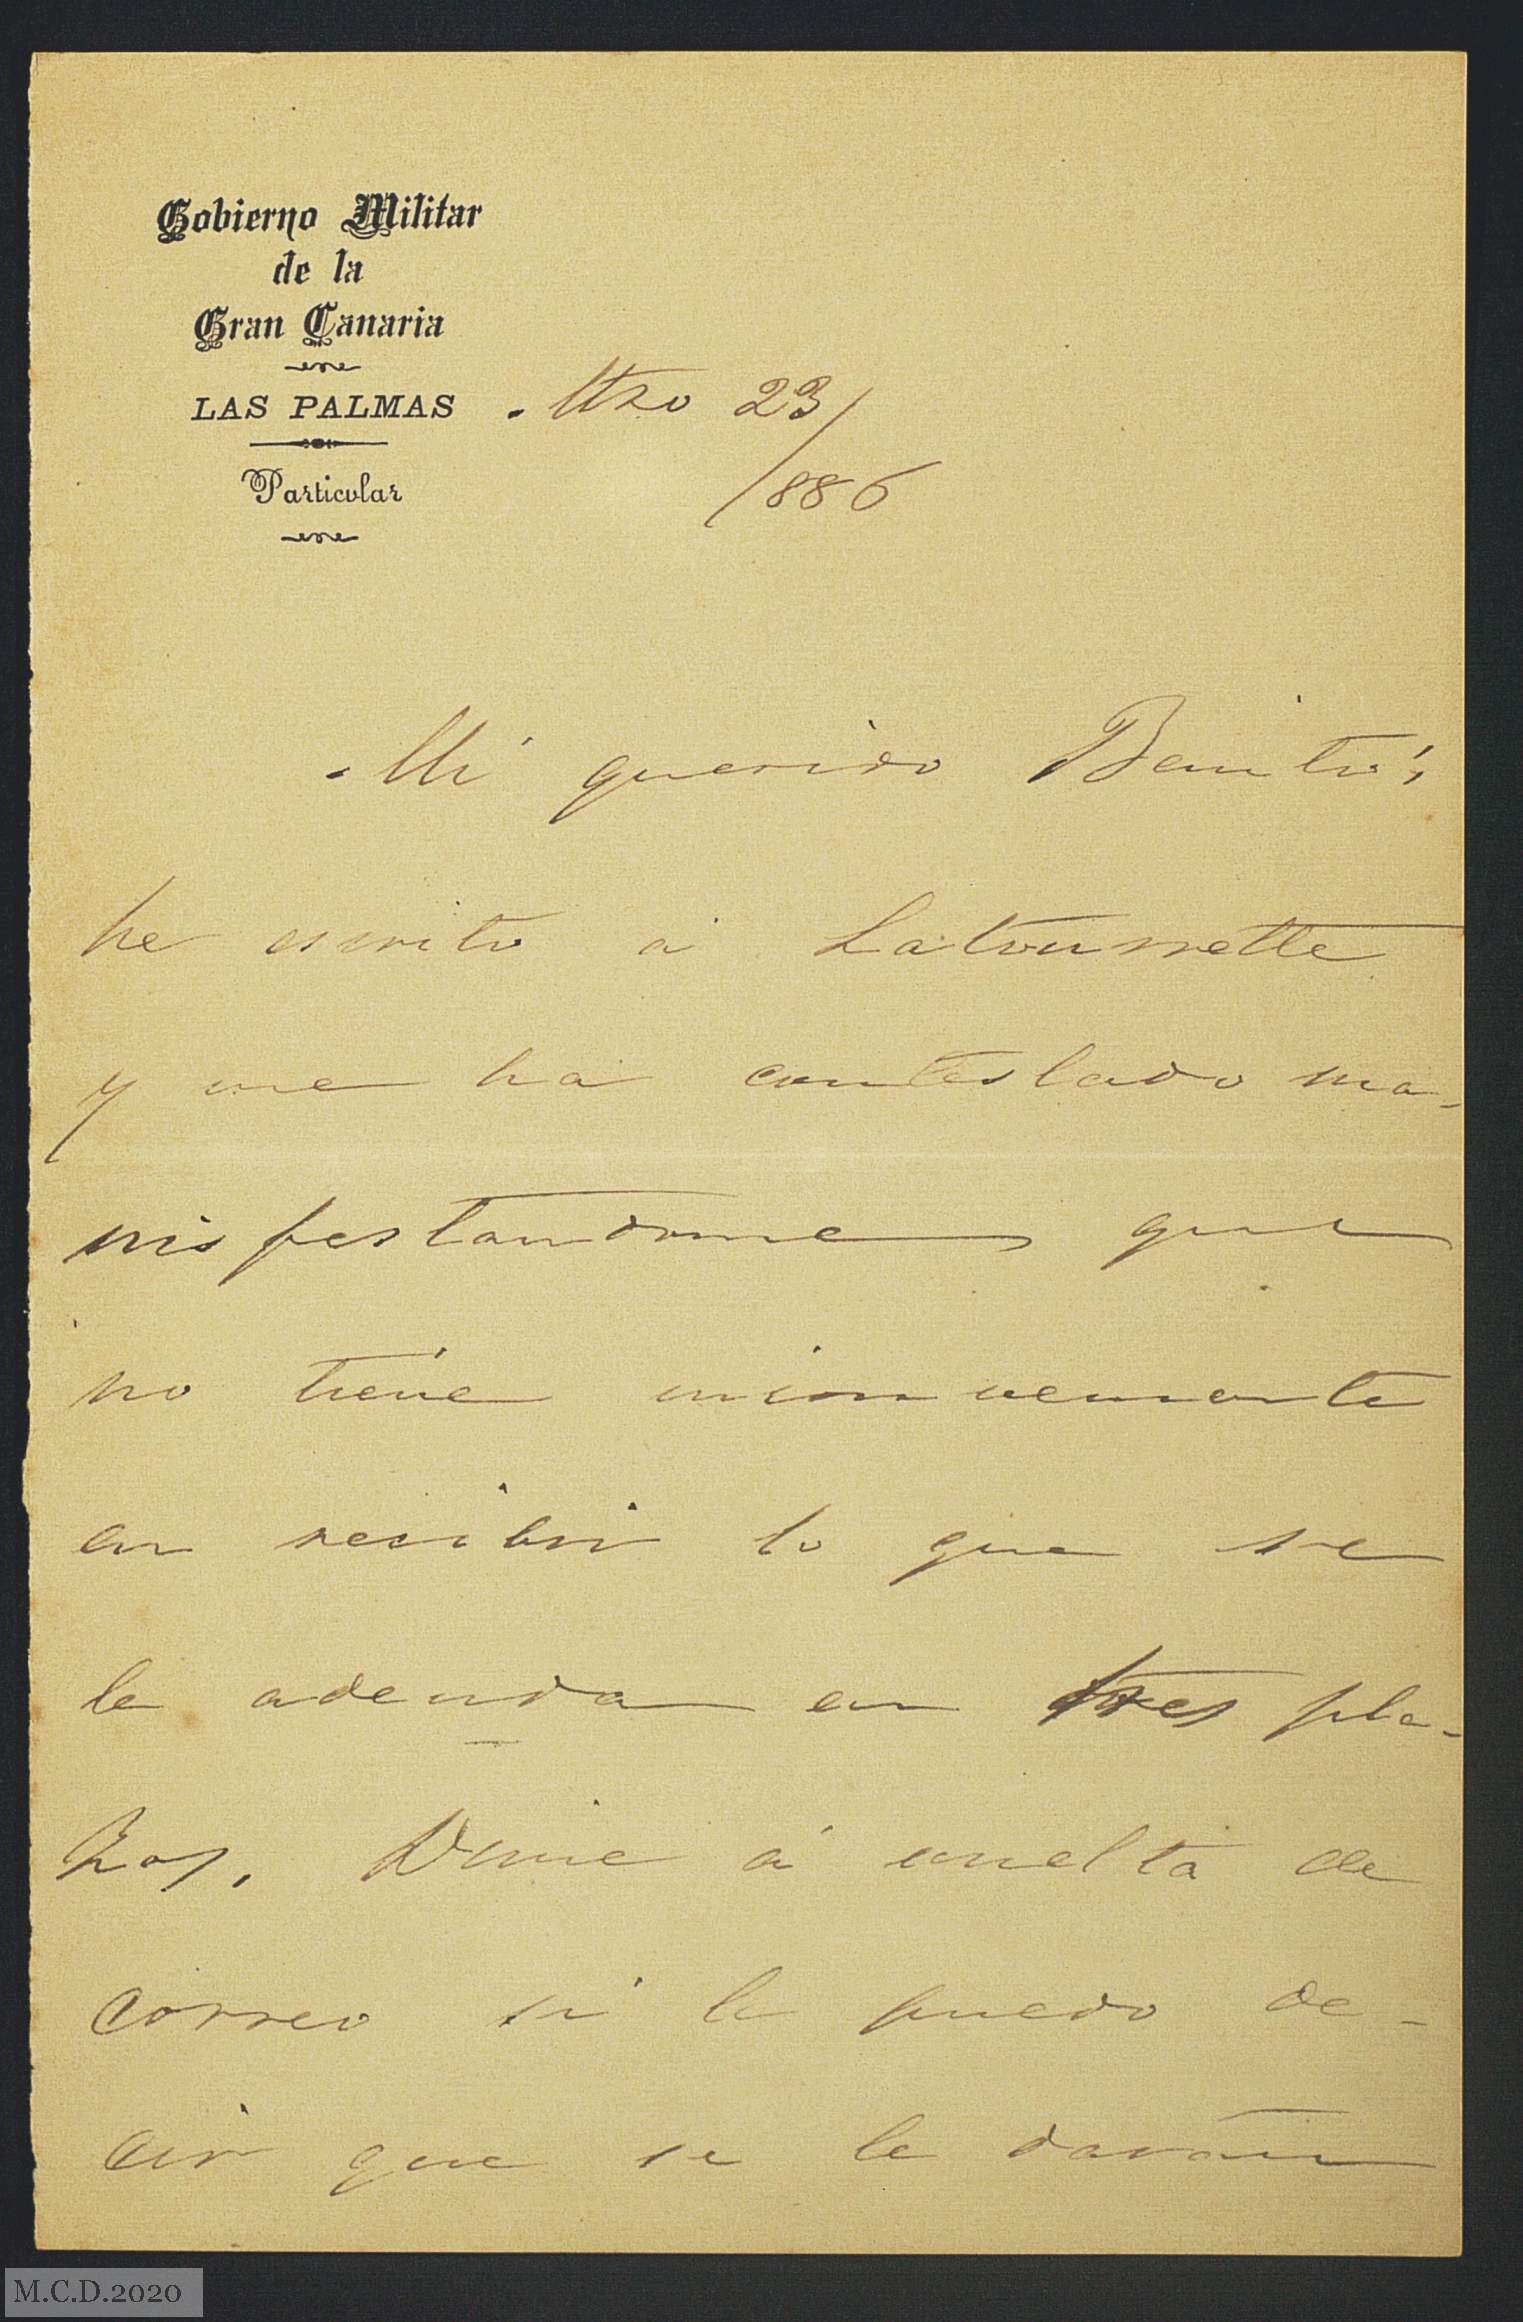 Gobierno Militar
de la
Gran Canaria
LAS PALMAS
Mzo 23/
/886
Particular
Mi querido Benito:
he escrito á Latourrette
y me há contestado ma-
nisfestandome que
no tiene inconveniente
en recibir lo que se
le adeuda en tres pla-
zos. Dime á vuelta de
correo si le puedo de-
cir que se le darán
M.C.D.2020